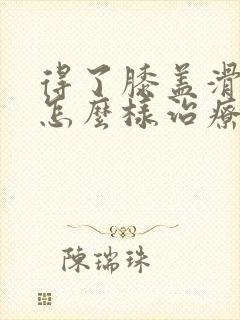 得了膝盖滑
怎麼樣治療
陳瑞珠